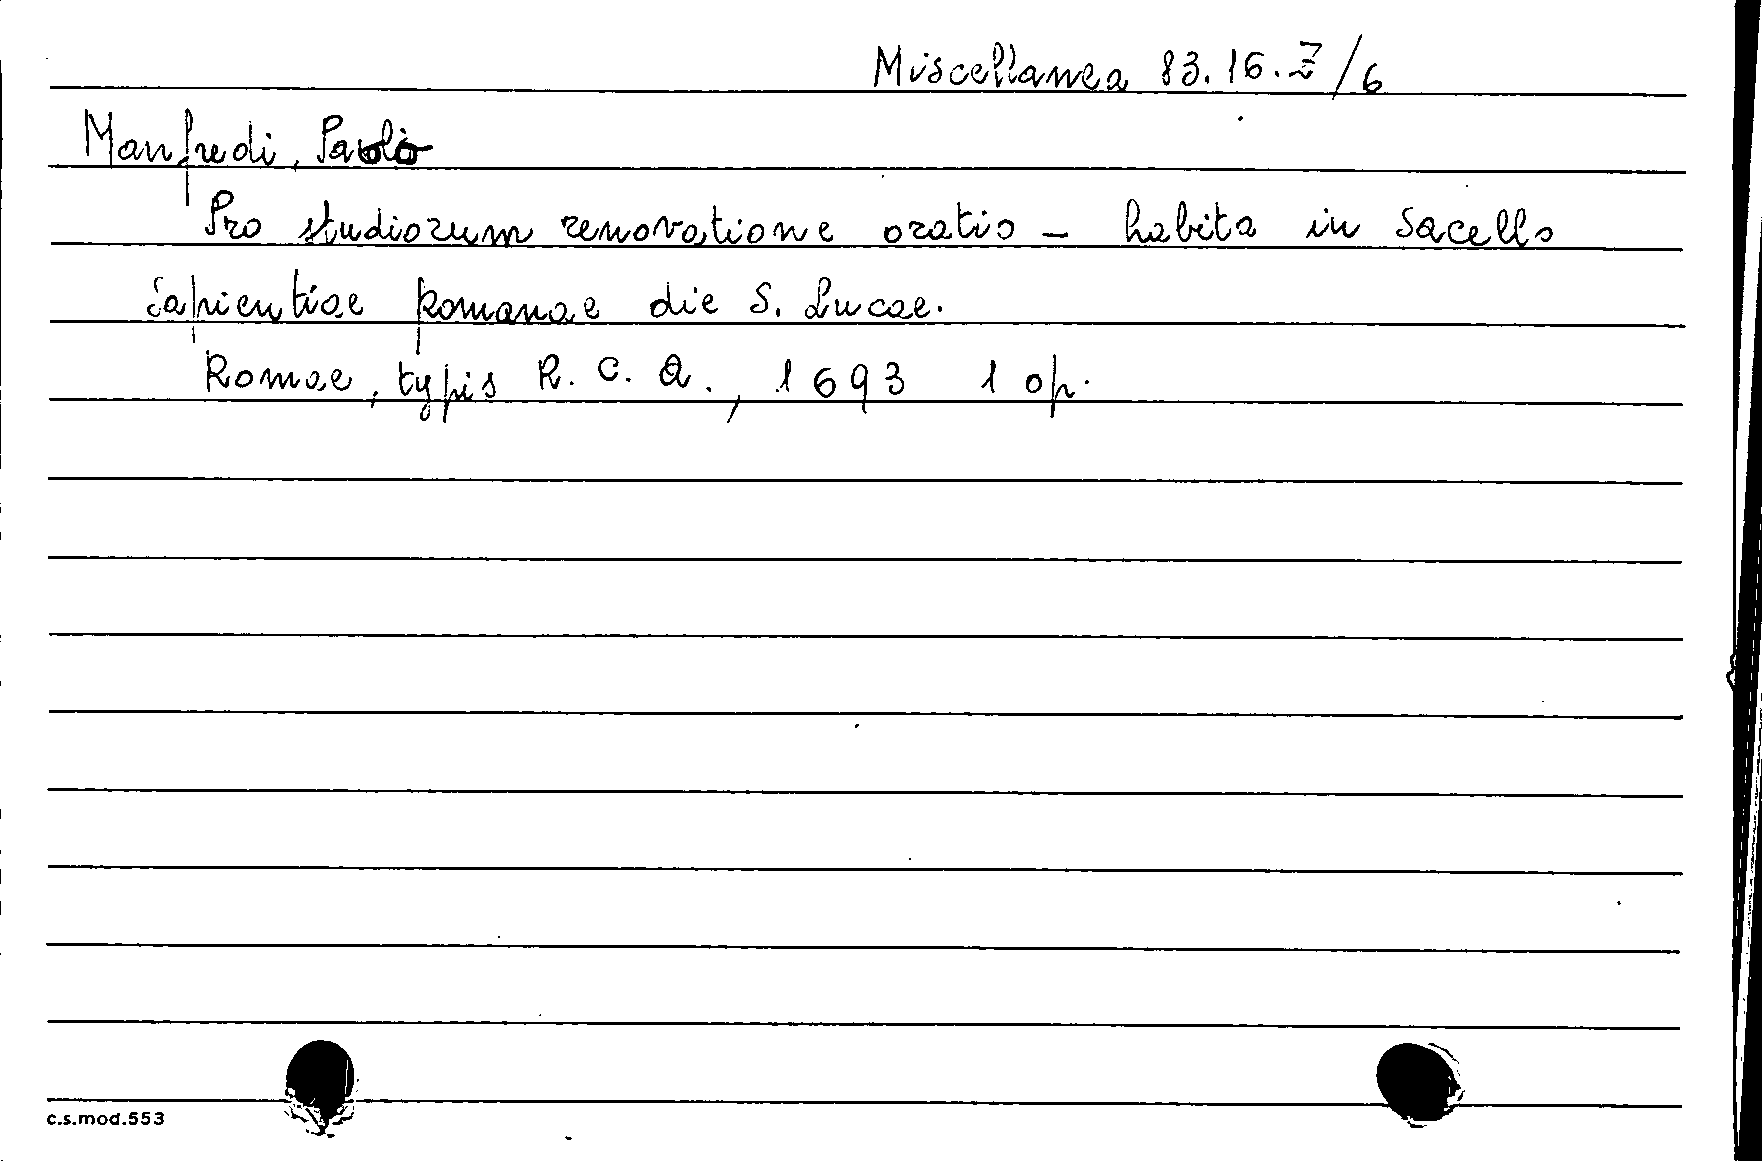 Miscellanea 83.16.Z/6
Manfredi, Paolo
Pro studiorum renovatione oratio - habita in sacello
sapientiae Romanae die S. Lucae.
Romae, typis R. C. A., 1693 1 op.
c.s.mod.553